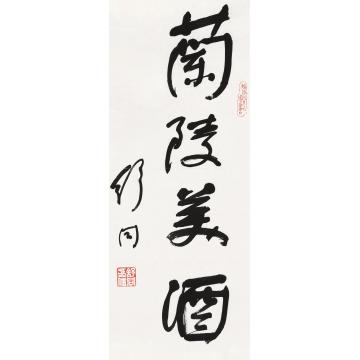 蘭陵美酒
舒同